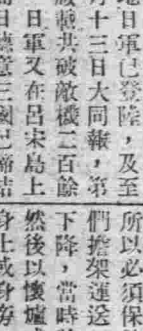 地日軍已登陸，及至
月十三日大同報，第
共破敵機二百餘
日軍又在呂宋島上
日德意三國已締結
所以必須保
們擔架運送
下降，當時
然後以懷爐
身上或身旁